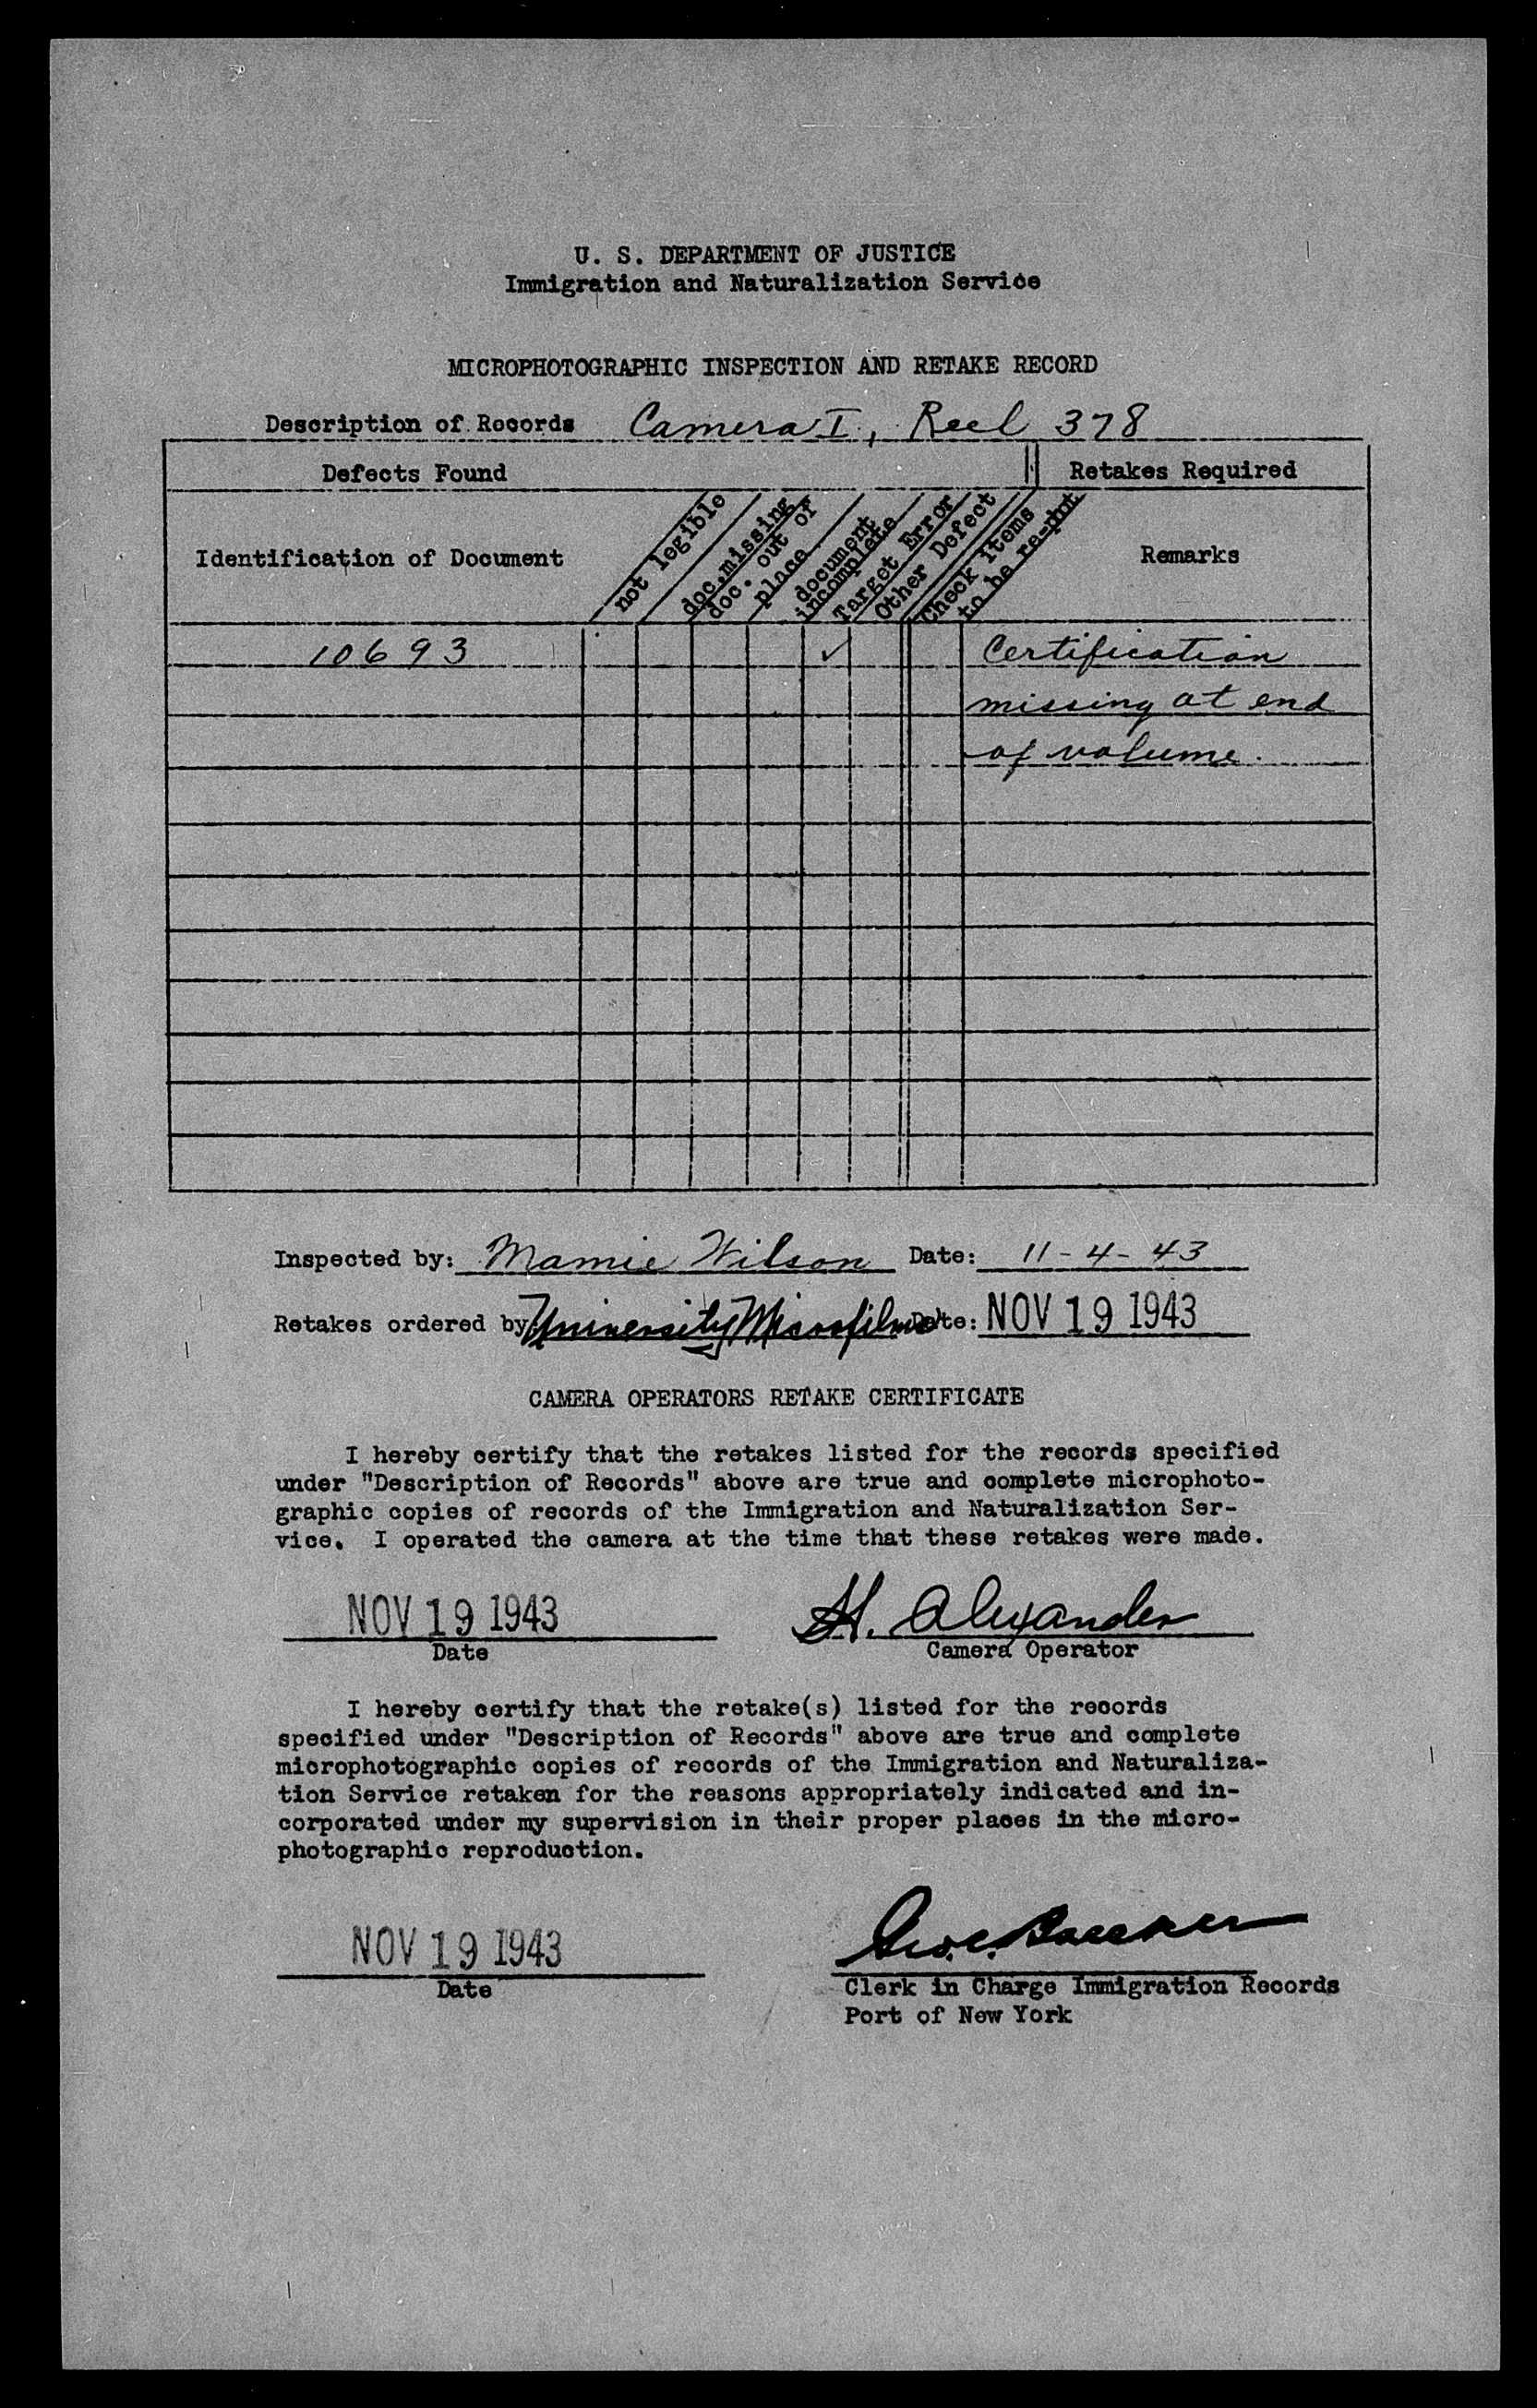 U. S. DEPARTMENT OF JUSTICE
Immigration and Naturalization Service
MICROPHOTOGRAPHIC INSPECTION AND RETAKE RECORD
Description of Records Camera I, Reel 378
Defects Found Retakes Required
Identification of Document
not legible
doc. missing
doc. out of
place
document
incomplete
Target Error
Other Defect
Check Items
to be re-phot
Remarks
10693 ✓ Certification
missing at end
of volume.
Inspected by: Mamie Wilson Date: 11-4-43
Retakes ordered by University Microfilms Date: NOV 19 1943
CAMERA OPERATORS RETAKE CERTIFICATE
I hereby certify that the retakes listed for the records specified
under "Description of Records" above are true and complete microphoto-
graphic copies of records of the Immigration and Naturalization Ser-
vice. I operated the camera at the time that these retakes were made.
NOV 19 1943 H. Alexander
Date Camera Operator
I hereby certify that the retake(s) listed for the records
specified under "Description of Records" above are true and complete
microphotographic copies of records of the Immigration and Naturaliza-
tion Service retaken for the reasons appropriately indicated and in-
corporated under my supervision in their proper places in the micro-
photographic reproduction.
NOV 19 1943
Date Clerk in Charge Immigration Records
Port of New York